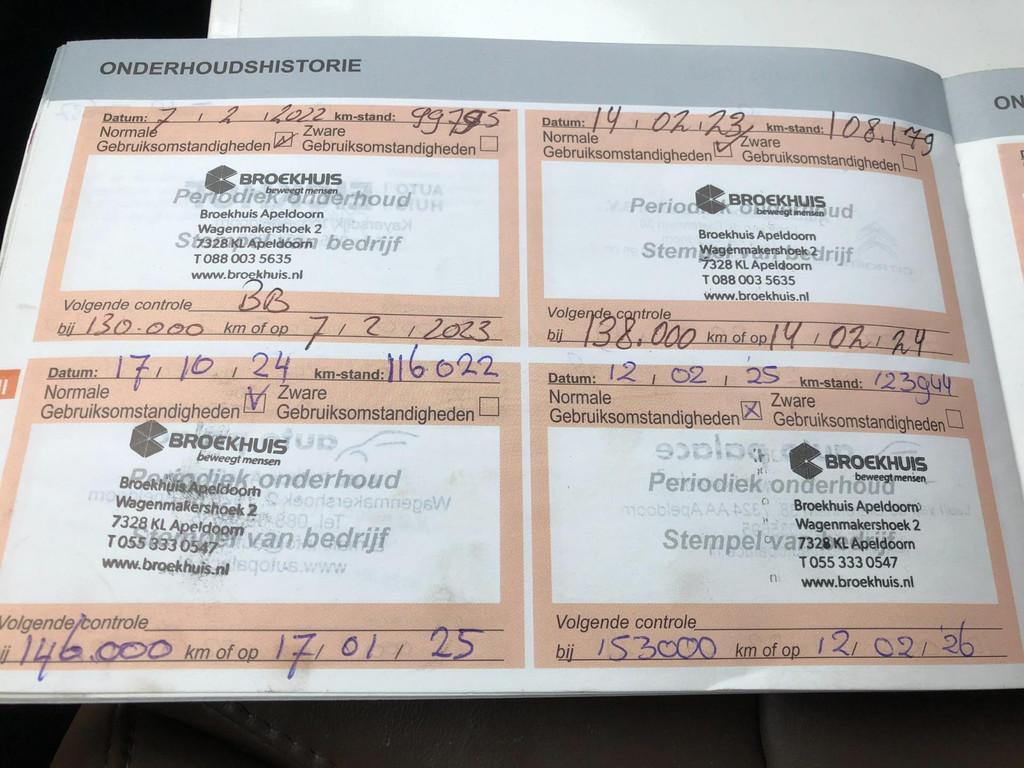 ONDERHOUDSHISTORIE
ON
Datum: 7 / 2 / 2022 km-stand:
Normale Zware
Gebruiksomstandigheden Gebruiksomstandigheden
BROEKHUIS
beweegt mensen
Periodiek onderhoud
Broekhuis Apeldoorn
Wagenmakershoek 2
Stempel van bedrijf
7328 KL Apeldoorn
T 088 003 5635
www.broekhuis.nl
Volgende controle BB
bij 130.000 km of op 7 / 2 / 2023
Datum: 14 / 02 / 23 km-stand: 108.179
Normale Zware
Gebruiksomstandigheden Gebruiksomstandigheden
BROEKHUIS
beweegt mensen
Periodiek onderhoud
Broekhuis Apeldoorn
Wagenmakershoek 2
Stempel van bedrijf
7328 KL Apeldoorn
T 088 003 5635
www.broekhuis.nl
Volgende controle
bij 138.000 km of op 14 / 02 / 24
Datum: 17 / 10 / 24 km-stand: 116.022
Normale Zware
Gebruiksomstandigheden Gebruiksomstandigheden
BROEKHUIS
beweegt mensen
Periodiek onderhoud
Broekhuis Apeldoorn
Wagenmakershoek 2
7328 KL Apeldoorn
Stempel van bedrijf
T 055 333 0547
www.broekhuis.nl
Volgende controle
ij 146.000 km of op 17 / 01 / 25
Datum: 12 / 02 / 25 km-stand: 123944
Normale Zware
Gebruiksomstandigheden Gebruiksomstandigheden
BROEKHUIS
beweegt mensen
Periodiek onderhoud
Broekhuis Apeldoorn
Wagenmakershoek 2
Stempel van bedrijf
7328 KL Apeldoorn
T 055 333 0547
www.broekhuis.nl
Volgende controle
bij 153000 km of op 12 / 02 / 26